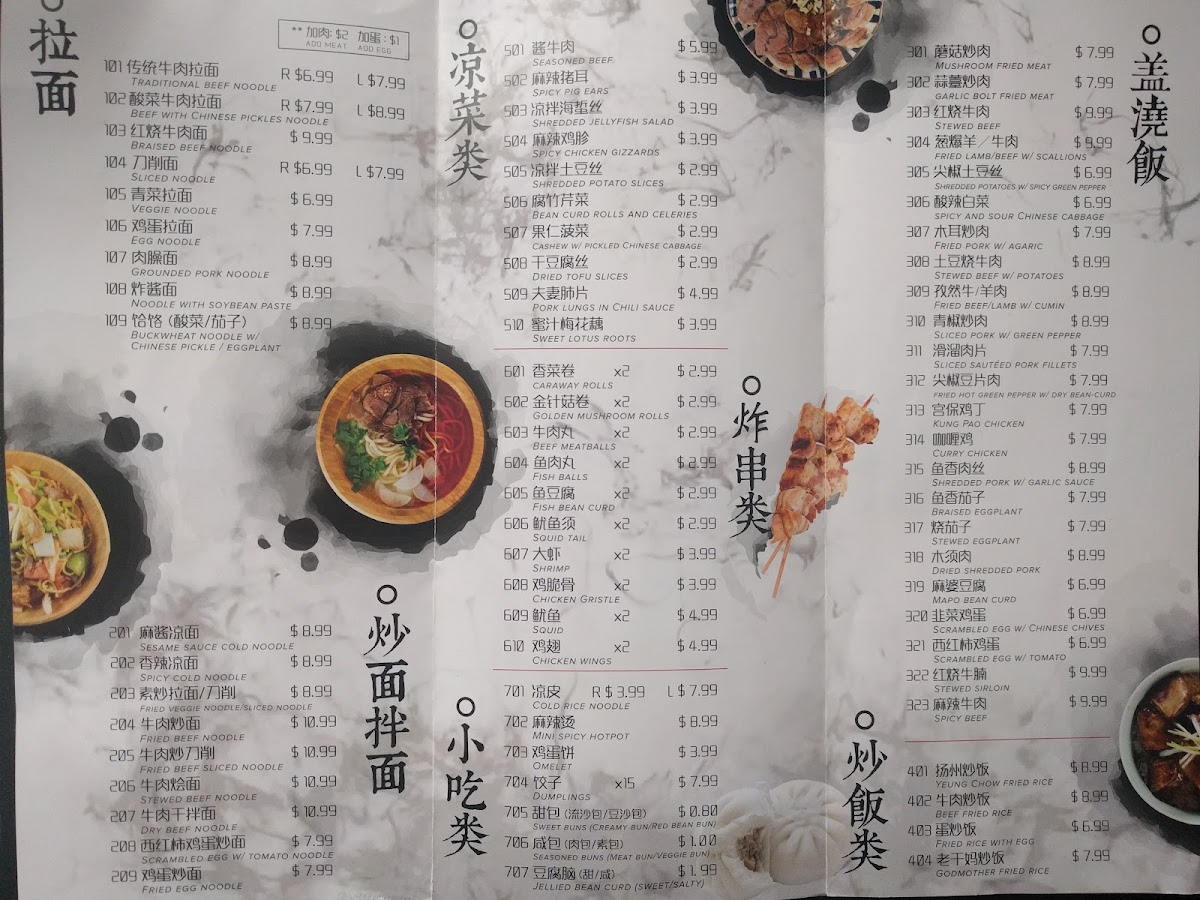 拉面
** 加肉: $2 加蛋: $1
ADD MEAT ADD EGG
101 传统牛肉拉面 R $6.99 L $7.99
TRADITIONAL BEEF NOODLE
102 酸菜牛肉拉面 R $7.99 L $8.99
BEEF WITH CHINESE PICKLES NOODLE
103 红烧牛肉面 $ 9.99
BRAISED BEEF NOODLE
104 刀削面 R $6.99 L $7.99
SLICED NOODLE
105 青菜拉面 $ 6.99
VEGGIE NOODLE
106 鸡蛋拉面 $ 7.99
EGG NOODLE
107 肉臊面 $ 8.99
GROUNDED PORK NOODLE
108 炸酱面 $ 8.99
NOODLE WITH SOYBEAN PASTE
109 饸饹 (酸菜/茄子) $ 8.99
BUCKWHEAT NOODLE W/
CHINESE PICKLE / EGGPLANT
炒面拌面
201 麻酱凉面 $ 8.99
SESAME SAUCE COLD NOODLE
202 香辣凉面 $ 8.99
SPICY COLD NOODLE
203 素炒拉面/刀削 $ 8.99
FRIED VEGGIE NOODLE/SLICED NOODLE
204 牛肉炒面 $ 10.99
FRIED BEEF NOODLE
205 牛肉炒刀削 $ 10.99
FRIED BEEF SLICED NOODLE
206 牛肉烩面 $ 10.99
STEWED BEEF NOODLE
207 牛肉干拌面 $ 10.99
DRY BEEF NOODLE
208 西红柿鸡蛋炒面 $ 7.99
SCRAMBLED EGG W/ TOMATO NOODLE
209 鸡蛋炒面 $ 7.99
FRIED EGG NOODLE
凉菜类
501 酱牛肉 $ 5.99
SEASONED BEEF
502 麻辣猪耳 $ 3.99
SPICY PIG EARS
503 凉拌海蜇丝 $ 3.99
SHREDDED JELLYFISH SALAD
504 麻辣鸡胗 $ 3.99
SPICY CHICKEN GIZZARDS
505 凉拌土豆丝 $ 2.99
SHREDDED POTATO SLICES
506 腐竹芹菜 $ 2.99
BEAN CURD ROLLS AND CELERIES
507 果仁菠菜 $ 2.99
CASHEW W/ PICKLED CHINESE CABBAGE
508 干豆腐丝 $ 2.99
DRIED TOFU SLICES
509 夫妻肺片 $ 4.99
PORK LUNGS IN CHILI SAUCE
510 蜜汁梅花藕 $ 3.99
SWEET LOTUS ROOTS
炸串类
601 香菜卷 x2 $ 2.99
CARAWAY ROLLS
602 金针菇卷 x2 $ 2.99
GOLDEN MUSHROOM ROLLS
603 牛肉丸 x2 $ 2.99
BEEF MEATBALLS
604 鱼肉丸 x2 $ 2.99
FISH BALLS
605 鱼豆腐 x2 $ 2.99
FISH BEAN CURD
606 鱿鱼须 x2 $ 2.99
SQUID TAIL
607 大虾 x2 $ 3.99
SHRIMP
608 鸡脆骨 x2 $ 3.99
CHICKEN GRISTLE
609 鱿鱼 x2 $ 4.99
SQUID
610 鸡翅 x2 $ 4.99
CHICKEN WINGS
小吃类
701 凉皮 R $ 3.99 L $ 7.99
COLD RICE NOODLE
702 麻辣烫 $ 8.99
MINI SPICY HOTPOT
703 鸡蛋饼 $ 3.99
OMELET
704 饺子 x15 $ 7.99
DUMPLINGS
705 甜包 (流沙包/豆沙包) $ 0.80
SWEET BUNS (CREAMY BUN/RED BEAN BUN)
706 咸包 (肉包/素包) $ 1.00
SEASONED BUNS (MEAT BUN/VEGGIE BUN)
707 豆腐脑 (甜/咸) $ 1.99
JELLIED BEAN CURD (SWEET/SALTY)
盖澆飯
301 蘑菇炒肉 $ 7.99
MUSHROOM FRIED MEAT
302 蒜薹炒肉 $ 7.99
GARLIC BOLT FRIED MEAT
303 红烧牛肉 $ 9.99
STEWED BEEF
304 葱爆羊／牛肉 $ 9.99
FRIED LAMB/BEEF W/ SCALLIONS
305 尖椒土豆丝 $ 6.99
SHREDDED POTATOES W/ SPICY GREEN PEPPER
306 酸辣白菜 $ 6.99
SPICY AND SOUR CHINESE CABBAGE
307 木耳炒肉 $ 7.99
FRIED PORK W/ AGARIC
308 土豆烧牛肉 $ 8.99
STEWED BEEF W/ POTATOES
309 孜然牛/羊肉 $ 8.99
FRIED BEEF/LAMB W/ CUMIN
310 青椒炒肉 $ 8.99
SLICED PORK W/ GREEN PEPPER
311 滑溜肉片 $ 7.99
SLICED SAUTÉED PORK FILLETS
312 尖椒豆片肉 $ 7.99
FRIED HOT GREEN PEPPER W/ DRY BEAN-CURD
313 宫保鸡丁 $ 7.99
KUNG PAO CHICKEN
314 咖喱鸡 $ 7.99
CURRY CHICKEN
315 鱼香肉丝 $ 8.99
SHREDDED PORK W/ GARLIC SAUCE
316 鱼香茄子 $ 7.99
BRAISED EGGPLANT
317 烧茄子 $ 7.99
STEWED EGGPLANT
318 木须肉 $ 8.99
DRIED SHREDDED PORK
319 麻婆豆腐 $ 6.99
MAPO BEAN CURD
320 韭菜鸡蛋 $ 6.99
SCRAMBLED EGG W/ CHINESE CHIVES
321 西红柿鸡蛋 $ 6.99
SCRAMBLED EGG W/ TOMATO
322 红烧牛腩 $ 9.99
STEWED SIRLOIN
323 麻辣牛肉 $ 9.99
SPICY BEEF
炒飯类
401 扬州炒饭 $ 8.99
YEUNG CHOW FRIED RICE
402 牛肉炒饭 $ 8.99
BEEF FRIED RICE
403 蛋炒饭 $ 6.99
FRIED RICE WITH EGG
404 老干妈炒饭 $ 7.99
GODMOTHER FRIED RICE